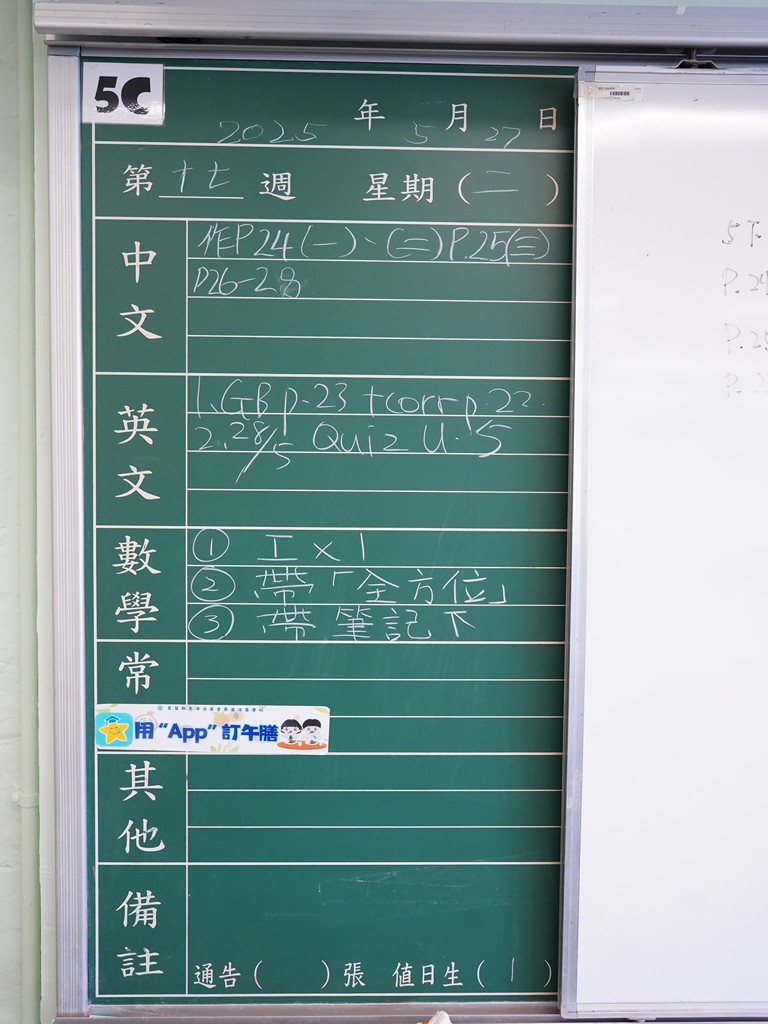 5C
2025 年 5 月 27 日
第 十七 週 星期（二）
中文
作P24(一)、(二)P.25(三)
P26-28
英文
1. GB p.23 + corr p.22.
2. 28/5 Quiz U.5
數學
① 工x1
② 帶「全方位」
③ 帶筆記下
常
用“App”訂午膳
其他
備註
通告（ ）張 值日生（1）
5下
P.24
P.25